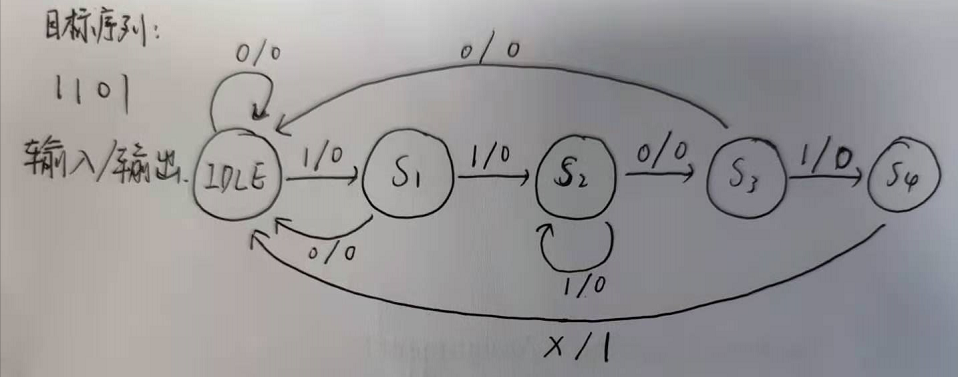 目标序列:
1101
输入/输出.
0/0
0/0
IDLE
1/0
S1
1/0
S2
0/0
S3
1/0
S4
0/0
1/0
X/1